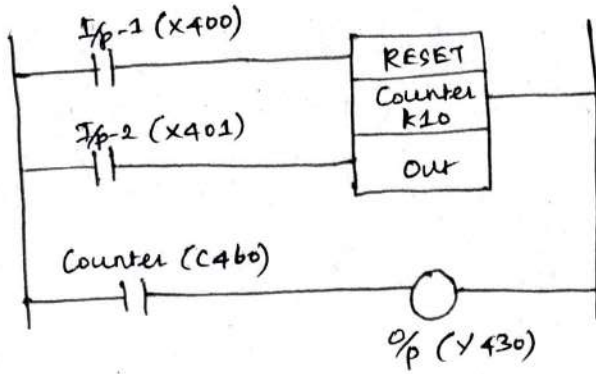 I/p-1 (X400)
RESET
Counter
K10
I/p-2 (X401)
Out
Counter (C460)
O/p (Y430)